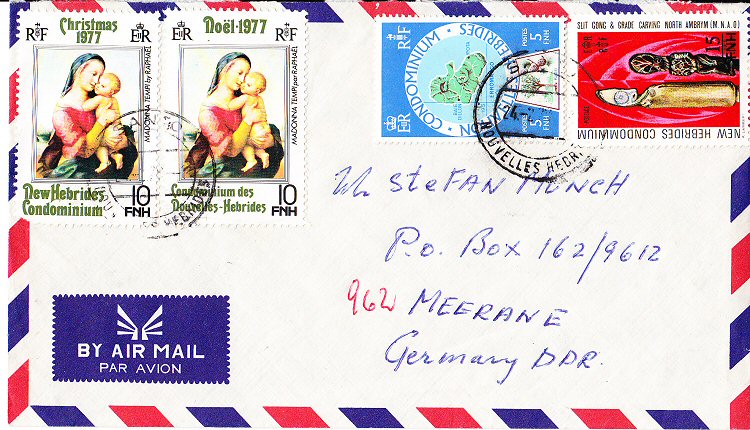 Christmas
1977
RF
EIIR
MADONNA TEMPI by RAPHAËL
New Hebrides
Condominium
10
FNH
Noël·1977
RF
EIIR
MADONNA TEMPI par RAPHAËL
Condominium des
Nouvelles-Hebrides
10
FNH
RF
EIIR
CONDOMINIUM
HEBRIDES
POSTES
5
FNH
NOUVELLES HEBR
SLIT GONG & GRADE CARVING NORTH AMBRYM (M.N.A.O)
15
FNH
RF
POSTAGE
NEW HEBRIDES CONDOMINIUM
STEFAN MÜNCH
P.O. Box 162/9612
962 MEERANE
Germany DDR.
BY AIR MAIL
PAR AVION